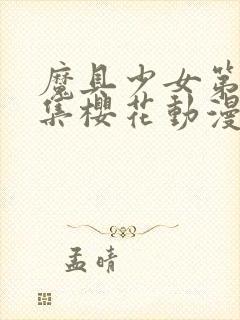 魔具少女第
集櫻花動漫
孟晴